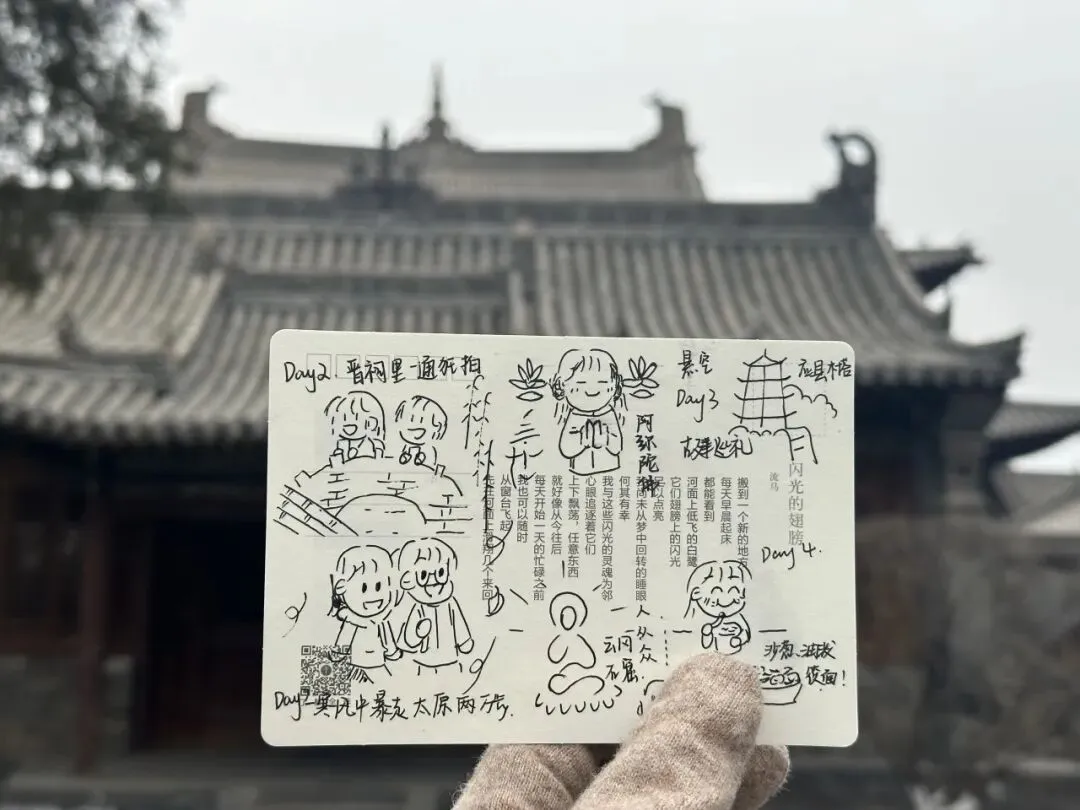 Day2 晋祠里一通死拍
悬空
Day3
应县木塔
古建巡礼
阿弥陀佛
闪光的翅膀
流马
搬到一个新的地方
每天早晨起床
都能看到
河面上低飞的白鹭
它们翅膀上的闪光
足以点亮
我尚未从梦中回转的睡眼
何其有幸
我与这些闪光的灵魂为邻
心眼追逐着它们
上下飘荡，任意东西
就好像从今往后
每天开始一天的忙碌之前
我也可以随时
从窗台飞起
先在河面上滑翔几个来回
Day 4.
人从众
云冈石窟
Day1 寒风中暴走太原两万步.